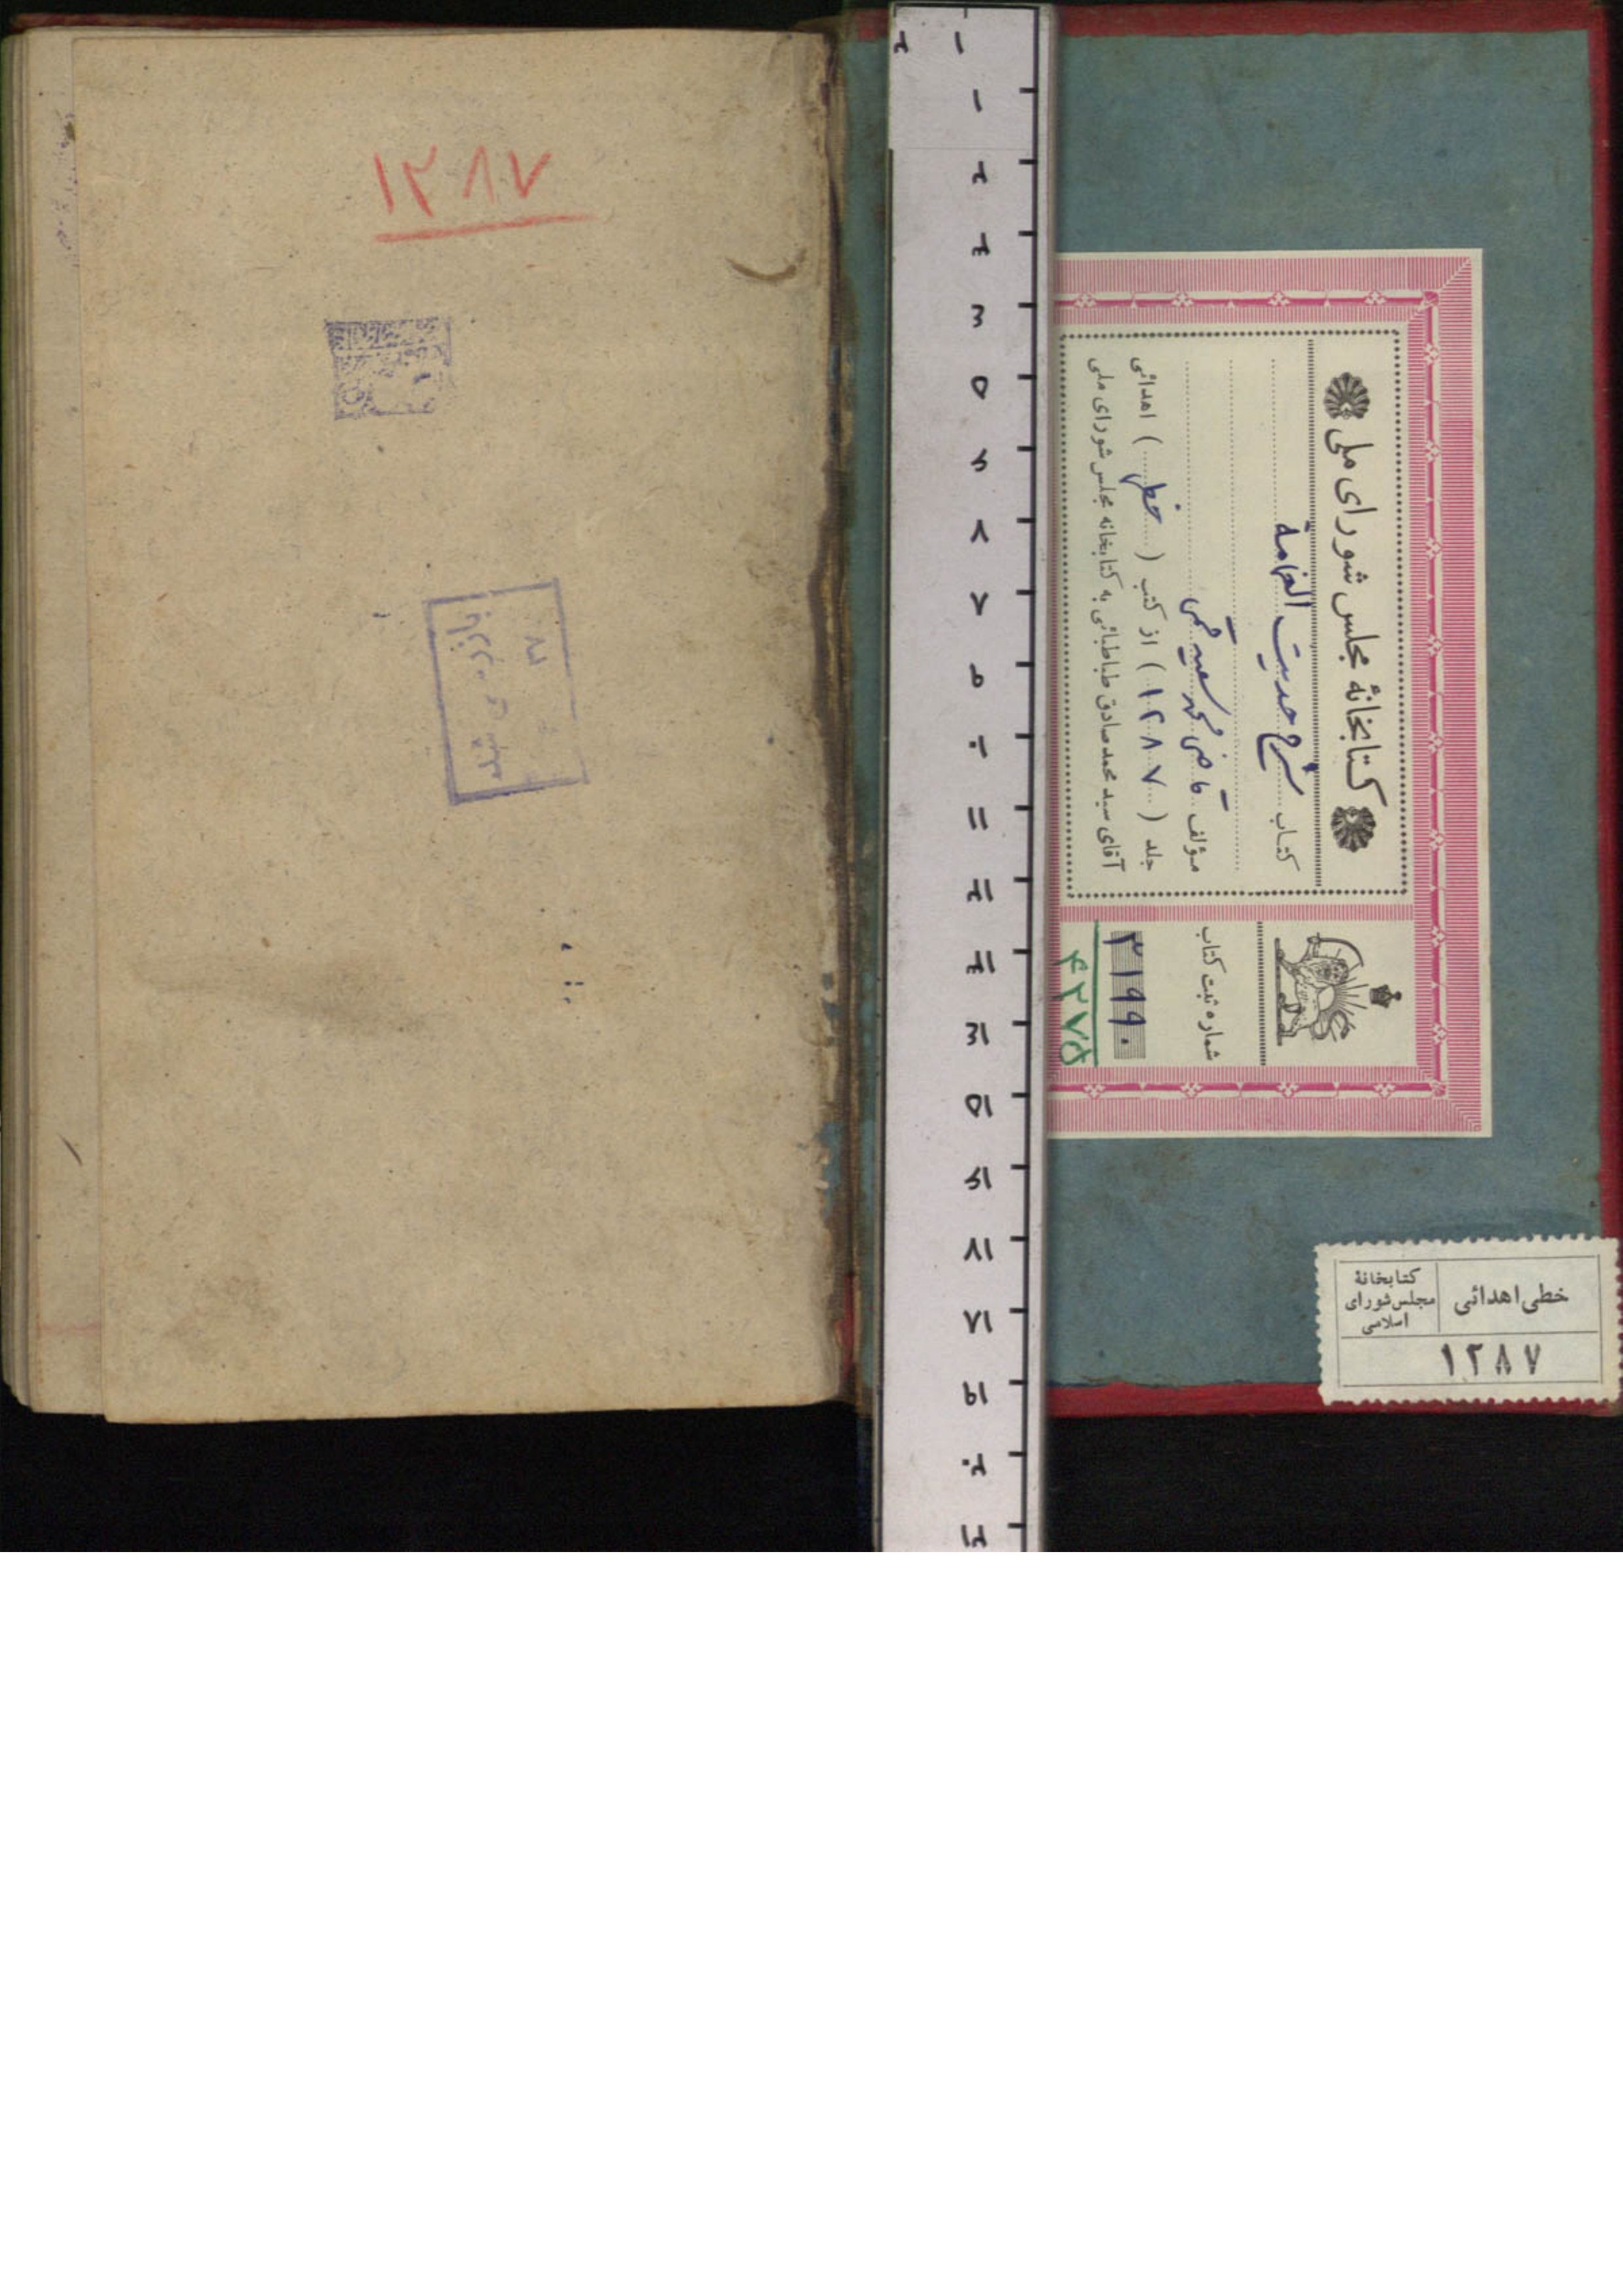 کتابخانهٔ مجلس شورای ملی
کتاب شرح حدیث الغمامة
مؤلف قاضی محمد سعید قمی
جلد (۱۲۸۷) از کتب (خطی) اهدائی
آقای سید محمد صادق طباطبائی به کتابخانه مجلس شورای ملی
شماره ثبت کتاب
۳۱۹۹۰
۴۲۷۵
خطی اهدائی
کتابخانهٔ
مجلس شورای
اسلامی
۱۲۸۷
۱
۲
۱
۲
۳
۴
۵
۶
۷
۸
۹
۱۰
۱۱
۱۲
۱۳
۱۴
۱۵
۱۶
۱۷
۱۸
۱۹
۲۰
۲۱
۱۲۸۷